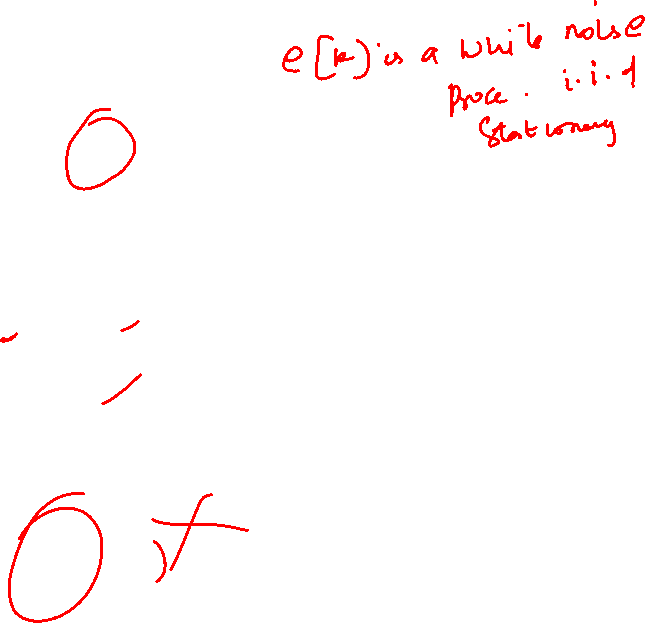 e[k] is a white noise
proce. i.i.d
Stationary